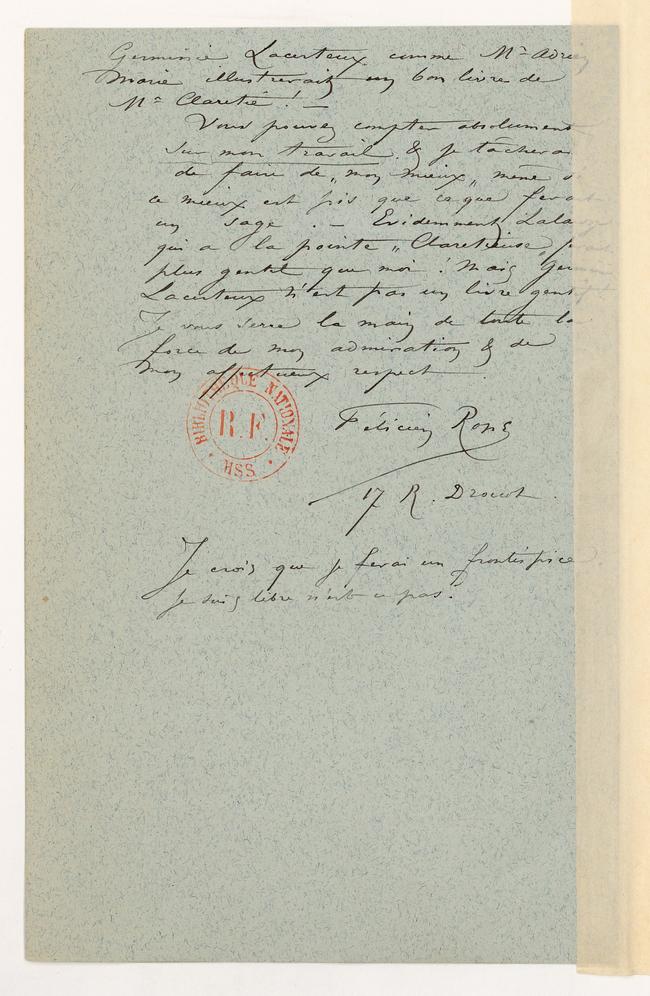 Germinie Lacerteux comme Mr Adrien
Marie illustrerait un bon livre de
Mr Claretie ! —
Vous pouvez compter absolument
sur mon travail & je tacherai
de faire de „mon mieux„ même si
ce mieux est pis que ce que ferait
un sage. — Evidemment Lalauze
qui a la pointe „Claretieuse„ serait
plus gentil que moi ! Mais Germinie
Lacerteux n'est pas un livre gentil
Je vous serre la main de toute la
force de mon admiration & de
mon affectueux respect.
BIBLIOTHEQUE NATIONALE
R.F.
MSS
Félicien Rops
17 R. Drouot.
Je crois que je ferai un frontispice
je suis libre n'est ce pas ?